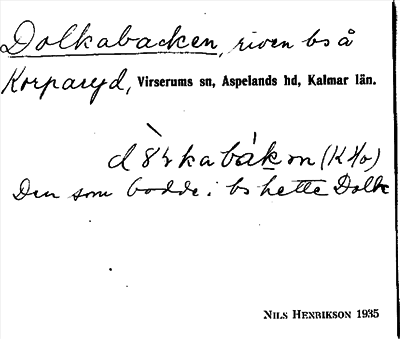 Dolkabacken, riven bs å
Korparyd, Virserums sn, Aspelands hd, Kalmar län.
(K Ho)
Den som bodde i bs hette Dolk
NILS HENRIKSON 1935